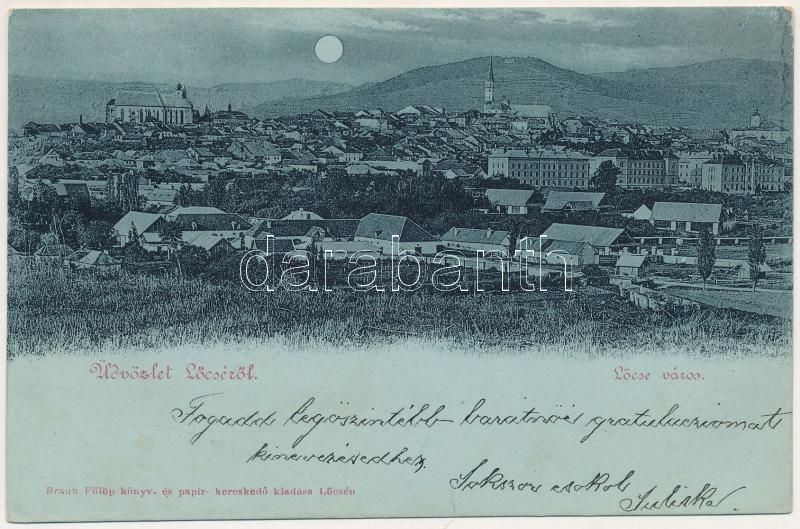 darabanth
Üdvözlet Lőcséről.
Lőcse város.
Fogadd legöszintébb baratnöi gratulacziomat
kinevezésedhez
Sokszor csokol
Juliska.
Braun Fülöp könyv- és papir- kereskedő kiadása Lőcsén